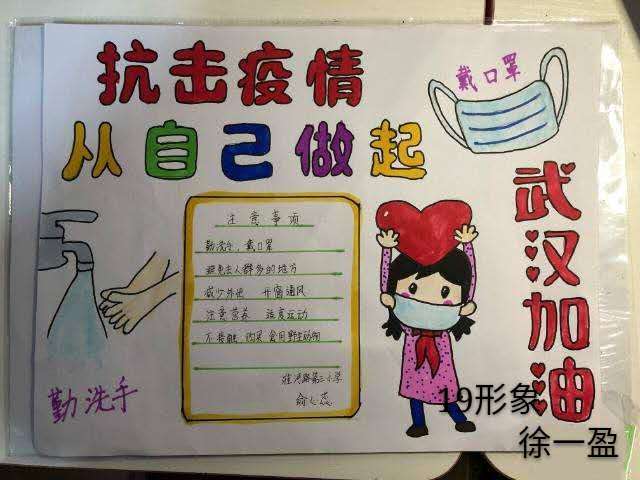 抗击疫情
从自己做起
戴口罩
武汉加油
注意事项
勤洗手、戴口罩
避免去人群多的地方
减少外出 开窗通风
注意营养 适度运动
不接触 购买 食用野生动物
勤洗手
19形象
徐一盈